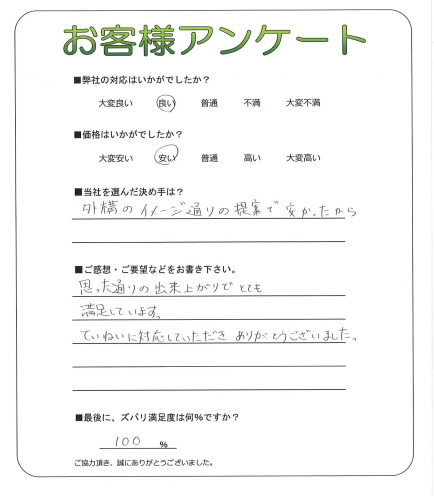 お客様アンケート
■弊社の対応はいかがでしたか?
大変良い 良い 普通 不満 大変不満
■価格はいかがでしたか?
大変安い 安い 普通 高い 大変高い
■当社を選んだ決め手は?
外構のイメージ通りの提案で安かったから
■ご感想・ご要望などをお書き下さい。
思った通りの出来上がりでとても
満足しています。
ていねいに対応していただきありがとうございました。
■最後に、ズバリ満足度は何%ですか?
100 %
ご協力頂き、誠にありがとうございました。